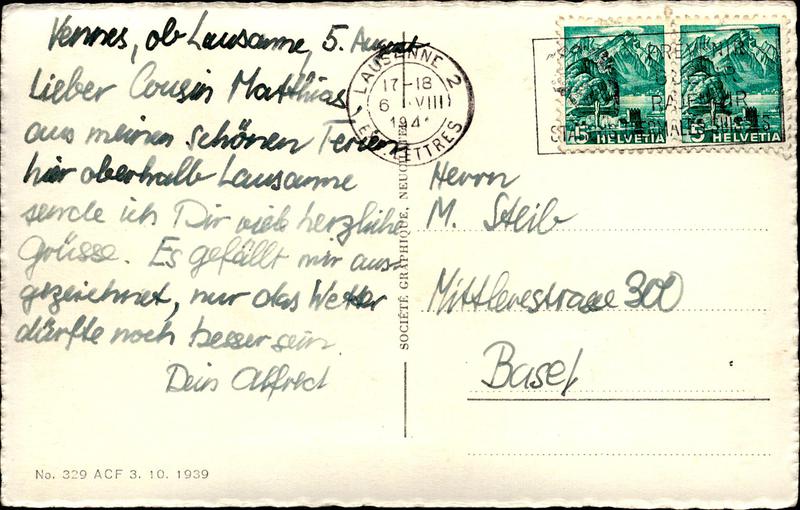 Vennes, ob Lausanne, 5. August
Lieber Cousin Matthias
aus meinen schönen Ferien
hier oberhalb Lausanne
sende ich Dir viele herzliche
Grüsse. Es gefällt mir aus-
gezeichnet, nur das Wetter
dürfte noch besser sein.
Dein Alfred
No. 329 ACF 3. 10. 1939
SOCIÉTÉ GRAPHIQUE, NEUCHATEL
LAUSANNE 2
17-18
6 VIII
194
EXP. LETTRES
5 HELVETIA
5 HELVETIA
Herrn
M. Steib
Mittlerestrasse 300
Basel